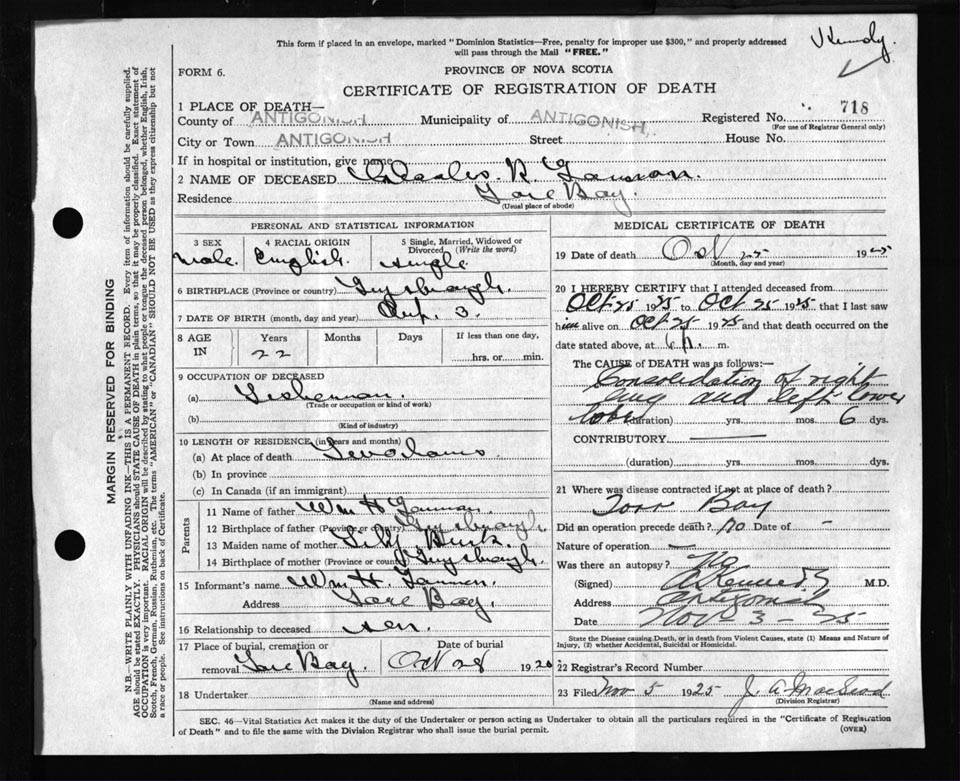 This form if placed in an envelope, marked "Dominion Statistics—Free, penalty for improper use $300," and properly addressed
will pass through the Mail "FREE."
FORM 6.
PROVINCE OF NOVA SCOTIA
CERTIFICATE OF REGISTRATION OF DEATH
1 PLACE OF DEATH—
County of ANTIGONISH Municipality of ANTIGONISH. Registered No. 718
(For use of Registrar General only)
City or Town ANTIGONISH Street House No.
If in hospital or institution, give name
2 NAME OF DECEASED Charles. R.
Residence Bay.
(Usual place of abode)
PERSONAL AND STATISTICAL INFORMATION
3 SEX
male.
4 RACIAL ORIGIN
English.
5 Single, Married, Widowed or Divorced (Write the word)
single
6 BIRTHPLACE (Province or country) Guysborough.
7 DATE OF BIRTH (month, day and year) 3.
8 AGE IN
Years
22
Months
Days
If less than one day,
hrs. or min.
9 OCCUPATION OF DECEASED
(a) Fisherman.
(Trade or occupation or kind of work)
(b)
(Kind of industry)
10 LENGTH OF RESIDENCE (in years and months)
(a) At place of death
(b) In province
(c) In Canada (if an immigrant)
Parents
11 Name of father Wm H
12 Birthplace of father (Province or Country) Guysborough
13 Maiden name of mother
14 Birthplace of mother (Province or country) Guysborough.
15 Informant's name Wm H.
Address Bay.
16 Relationship to deceased
17 Place of burial, cremation or
removal Bay.
Date of burial
Oct 28 192
18 Undertaker
(Name and address)
MEDICAL CERTIFICATE OF DEATH
19 Date of death Oct 25 19
(Month, day and year)
20 I HEREBY CERTIFY that I attended deceased from
Oct 25 1925 to Oct 25 1925 that I last saw
him alive on Oct 25 1925 and that death occurred on
date stated above, at m.
The CAUSE of DEATH was as follows:—
Consolidation of right
lung and left lower
lobe (duration) yrs. mos. 6 dys.
CONTRIBUTORY —
(duration) yrs. mos. dys.
21 Where was disease contracted if not at place of death?
Torr Bay
Did an operation precede death? no Date of -
Nature of operation —
Was there an autopsy? no
(Signed) M.D.
Address Antigonish
Date Nov 3 - 25
State the Disease causing Death, or in death from Violent Causes, state (1) Means and Nature of
Injury, (2) whether Accidental, Suicidal or Homicidal.
22 Registrar's Record Number
23 Filed Nov 5 1925 J. A. MacLeod
(Division Registrar)
SEC. 46—Vital Statistics Act makes it the duty of the Undertaker or person acting as Undertaker to obtain all the particulars required in the "Certificate of Registration
of Death" and to file the same with the Division Registrar who shall issue the burial permit.
(OVER)
MARGIN RESERVED FOR BINDING
N.B.—WRITE PLAINLY WITH UNFADING INK—THIS IS A PERMANENT RECORD. Every item of information should be carefully supplied.
AGE should be stated EXACTLY. PHYSICIANS should STATE CAUSE OF DEATH in plain terms, so that it may be properly classified. Exact statement of
OCCUPATION is very important. RACIAL ORIGIN will be described by stating to what people or tongue the deceased person belonged, whether English, Irish,
Scotch, French, German, Russian, Ruthenian, etc. The terms "AMERICAN" or "CANADIAN" SHOULD NOT BE USED as they express citizenship but not
a race or people. See instructions on back of Certificate.